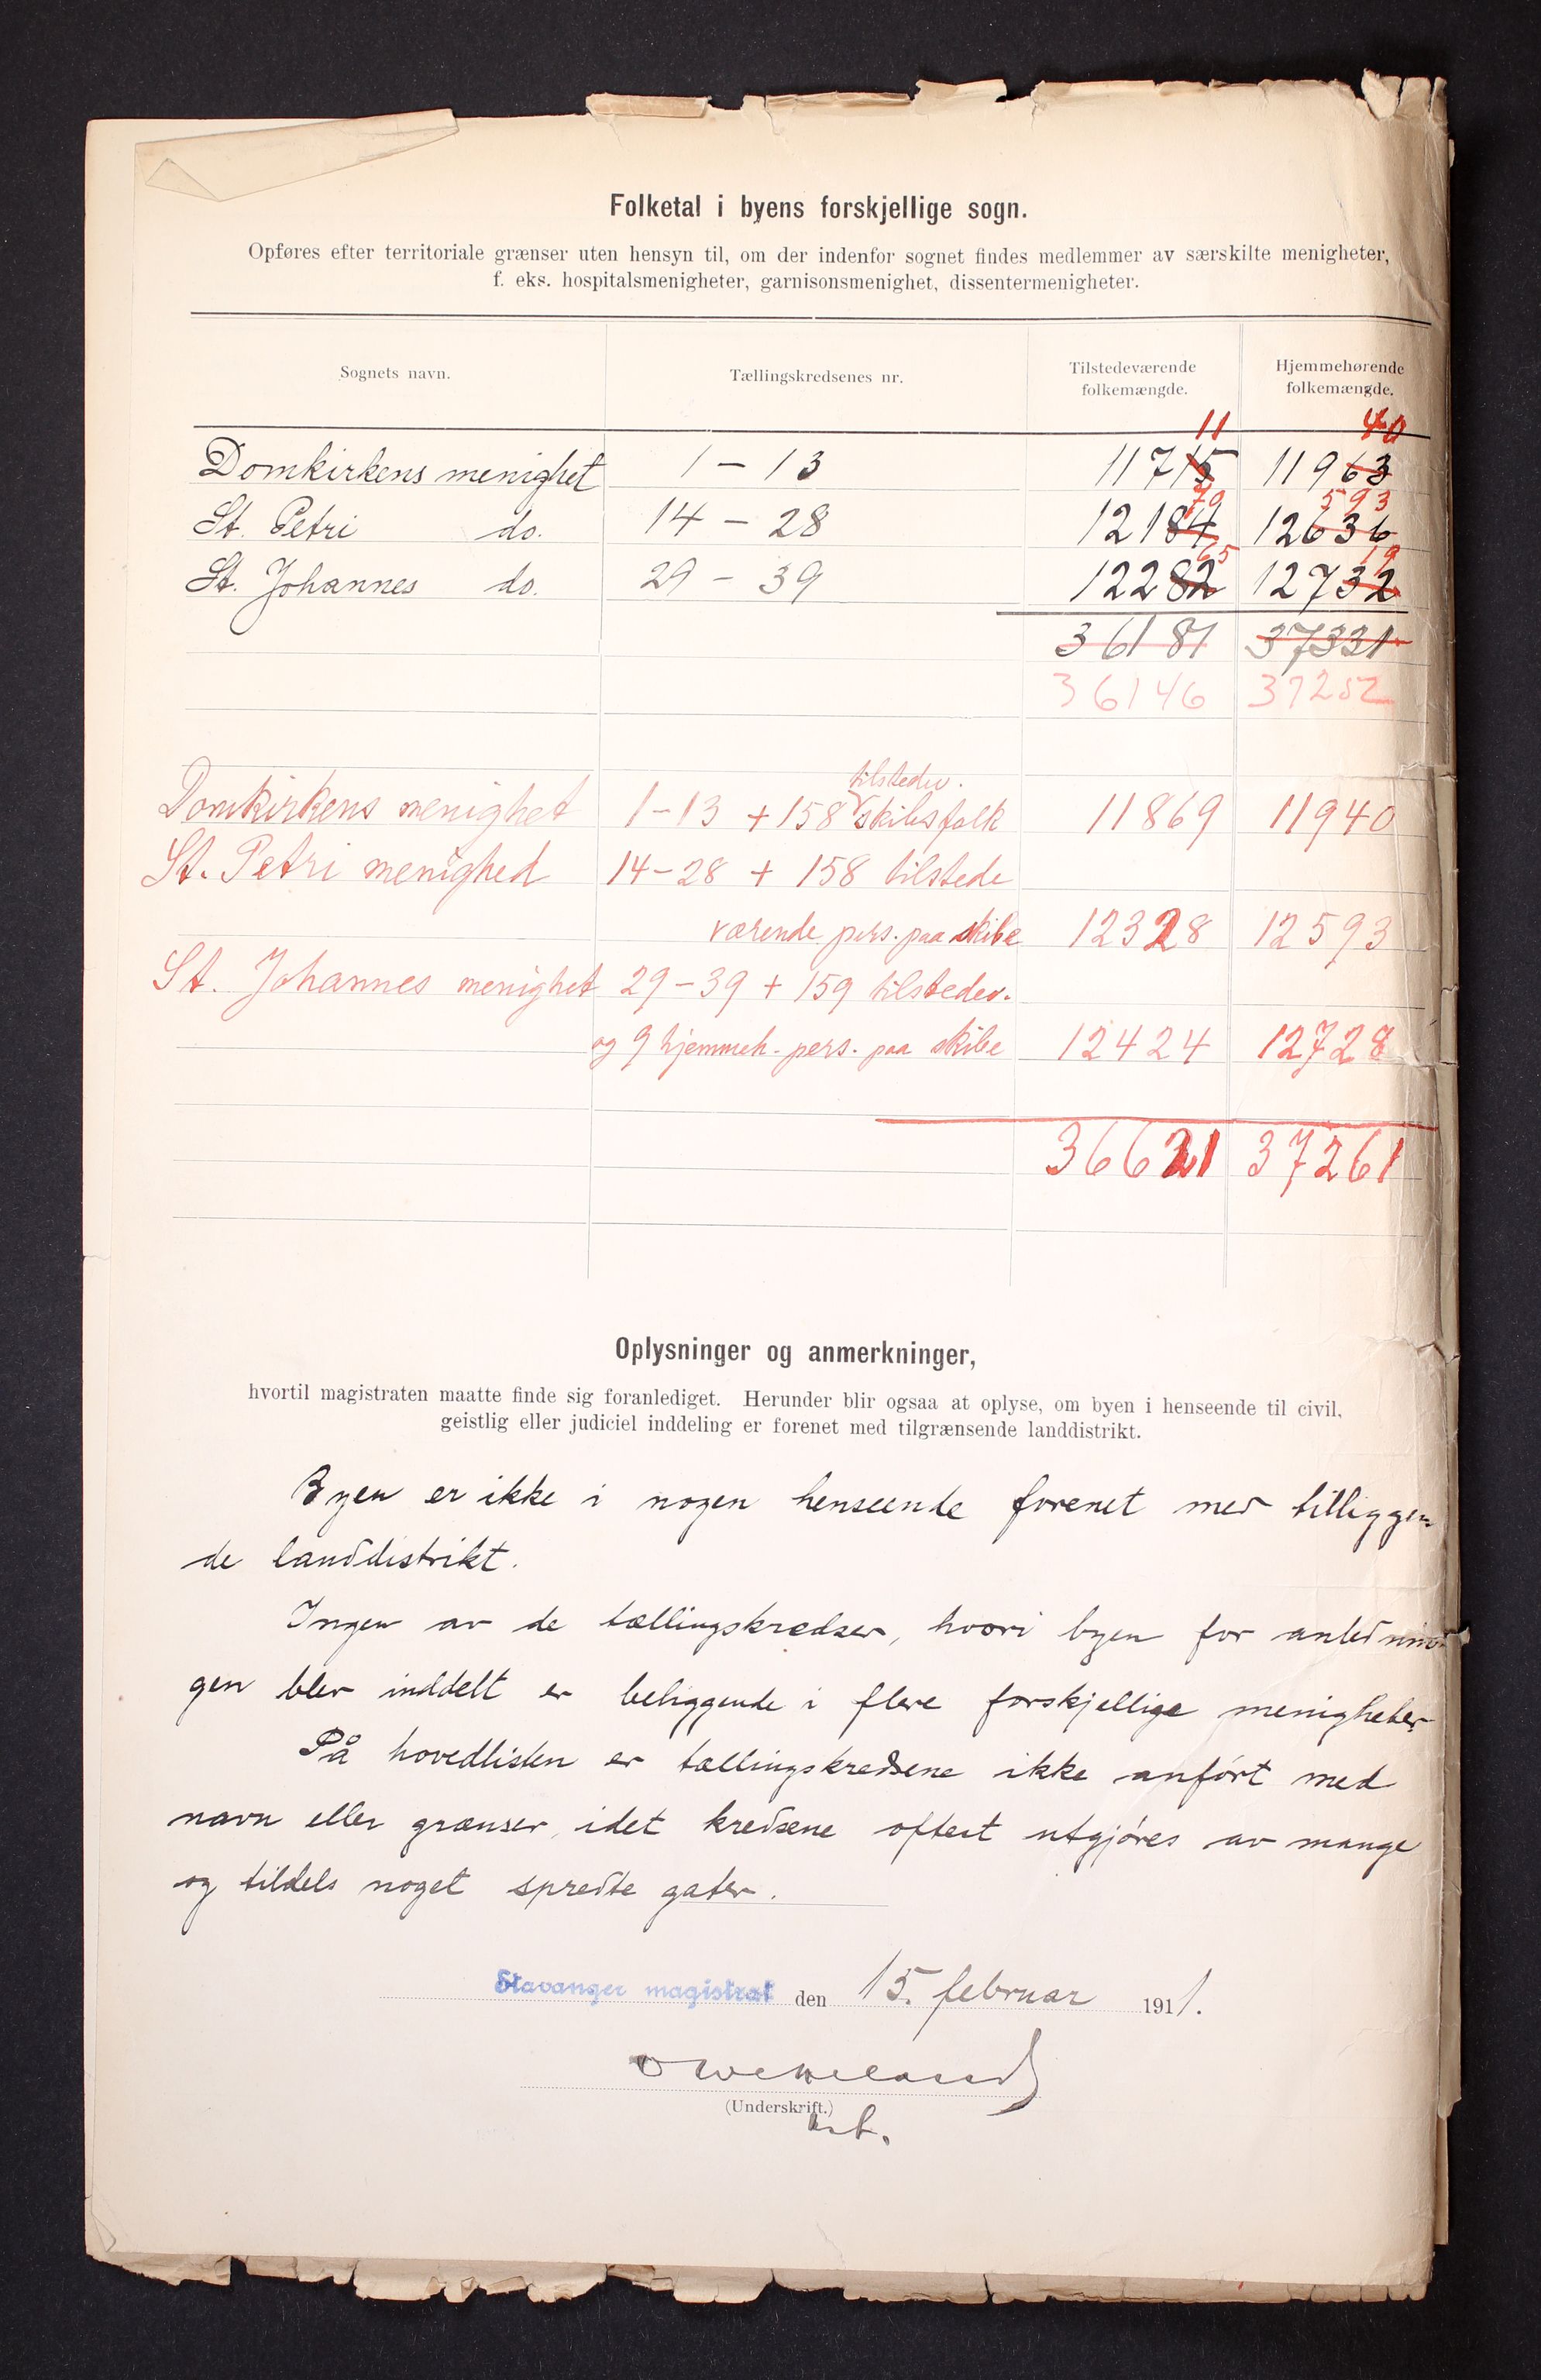 Folketal i byens forskjellige sogn.
Opføres efter territoriale grænser uten hensyn til, om der indenfor sognet findes medlemmer av særskilte menigheter,
f. eks. hospitalsmenigheter, garnisonsmenighet, dissentermenigheter.
Sognets navn. Tællingskredsenes nr. Tilstedeværende folkemængde. Hjemmehørende folkemængde.
11 40
Domkirkens menighet 1 – 13 11715 11963
70 593
St. Petri do. 14 – 28 12184 12636
65 19
St. Johannes do. 29 – 39 12282 12732
36181 37331
36146 37252
tilstedev.
Domkirkens menighet 1–13 + 158 skibsfolk 11869 11940
St. Petri menighed 14–28 + 158 tilstede
værende pers. paa skibe 12328 12593
St. Johannes menighet 29–39 + 159 tilstedev.
og 9 hjemmeh. pers. paa skibe 12424 12728
36621 37261
Oplysninger og anmerkninger,
hvortil magistraten maatte finde sig foranlediget. Herunder blir ogsaa at oplyse, om byen i henseende til civil,
geistlig eller judiciel inddeling er forenet med tilgrænsende landdistrikt.
Byen er ikke i nogen henseende forenet med tilliggen
de landdistrikt.
Ingen av de tællingskredser, hvori byen for anlednin
gen blev inddelt er beliggende i flere forskjellige menigheter.
På hovedlisten er tællingskredsene ikke anført med
navn eller grænser, idet kredsene oftest utgjøres av mange
og tildels noget spredte gater.
Stavanger magistrat den 15. februar 1911.
(Underskrift.)